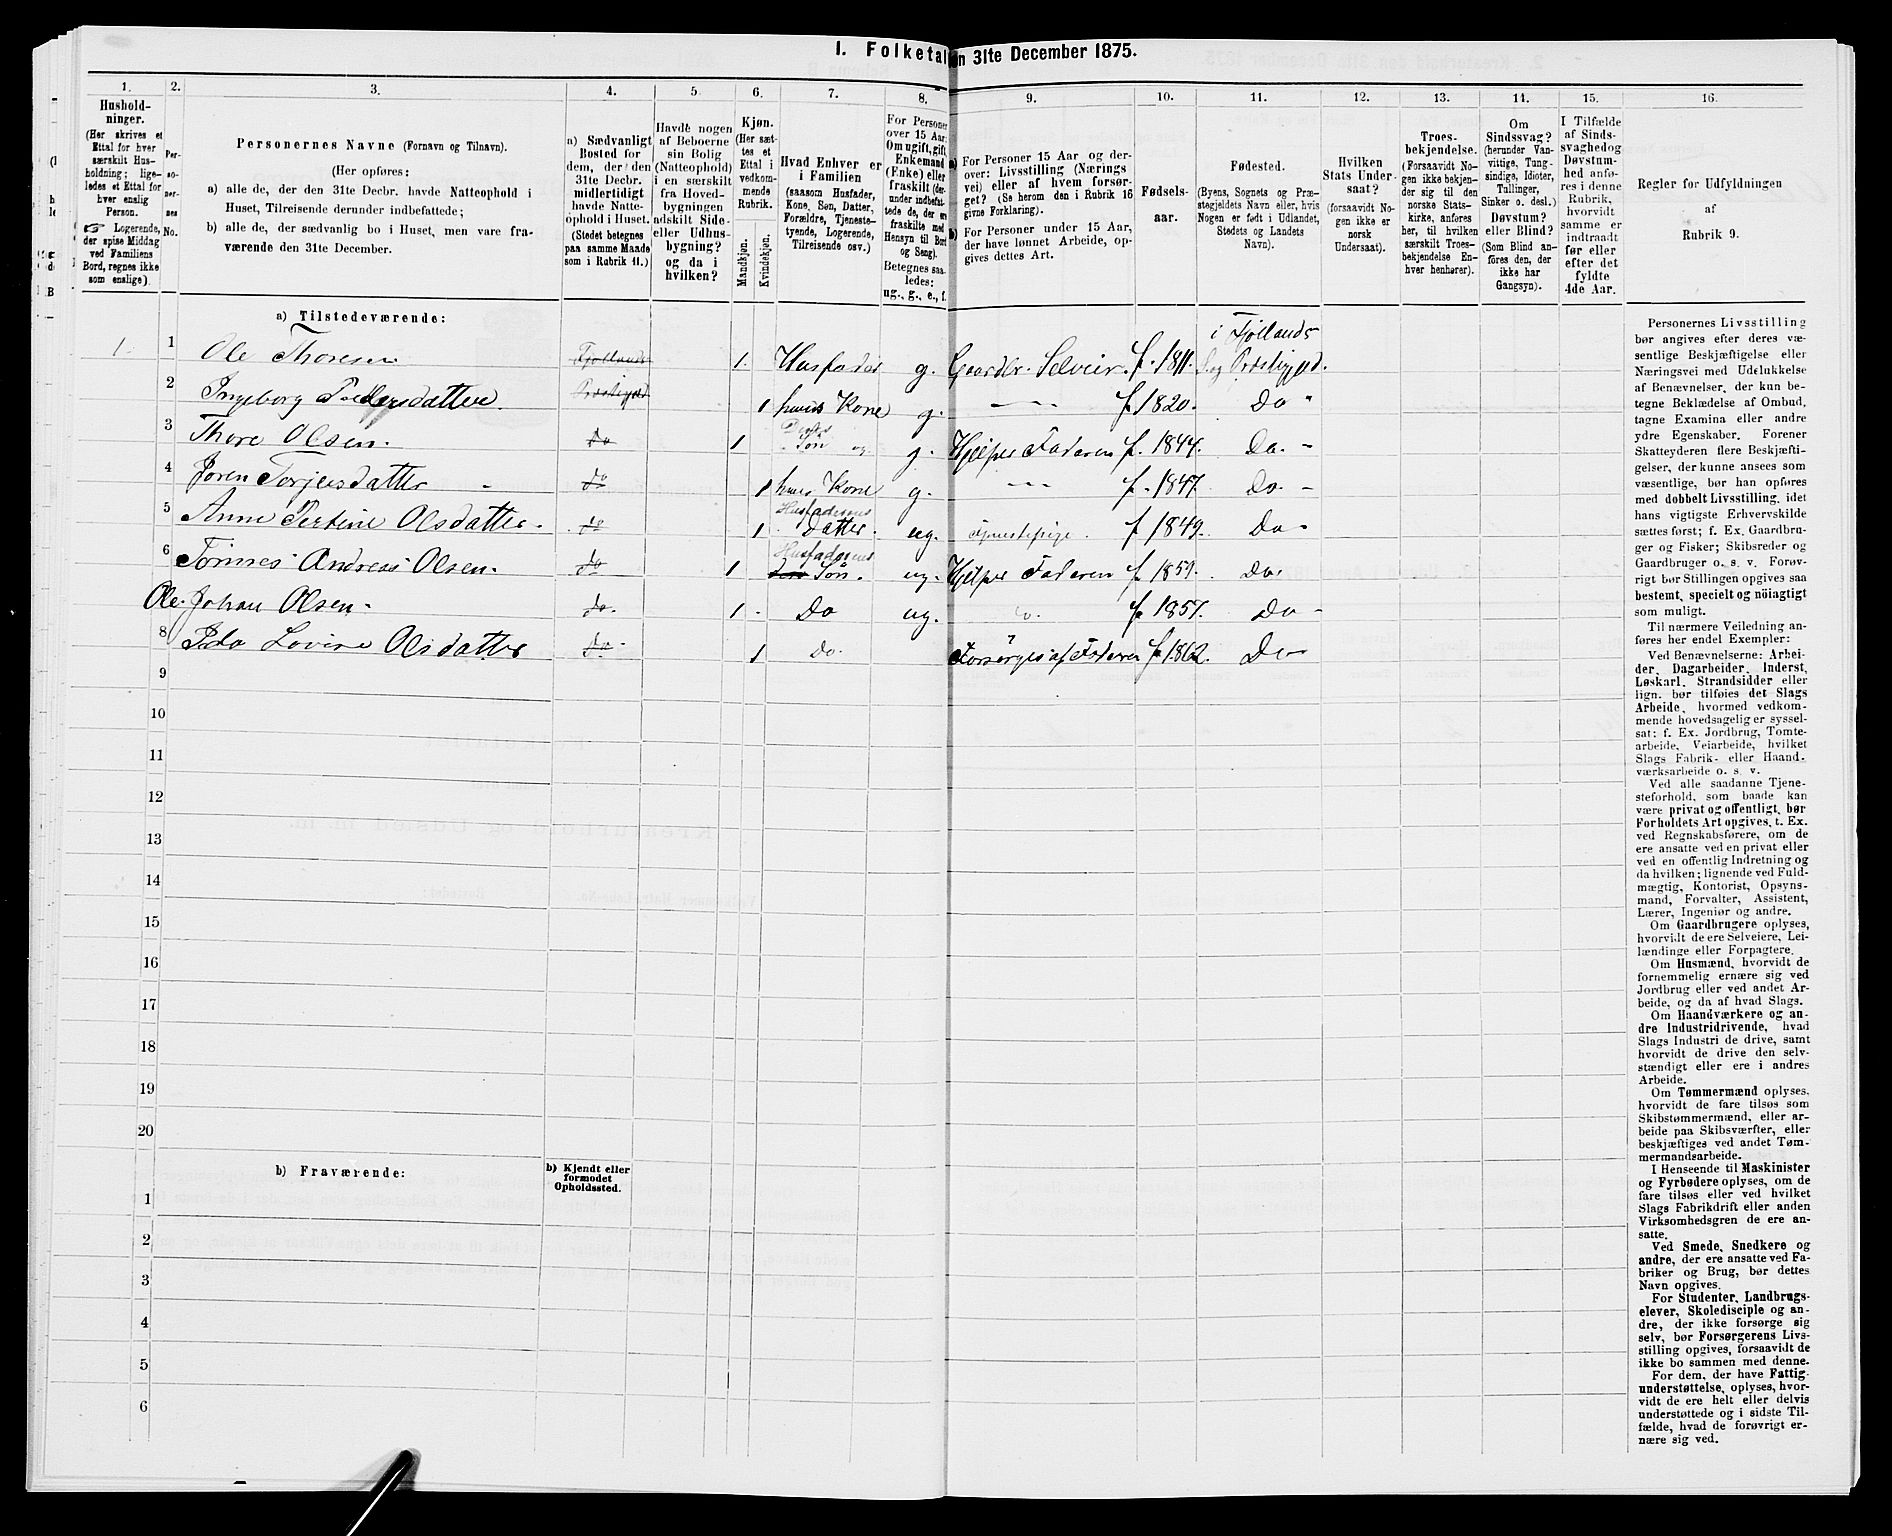 I. Folketal den 31te December 1875.
1. 2. 3. 4. 5. 6. 7. 8. 9. 10. 11. 12. 13. 14. 15. 16.
Hushold-
ninger.
(Her skrives et
Ettal for hver
særskilt Hus-
holdning; lige-
ledes et Ettal for
hver enslig
Person.
☞ Logerende,
der spise Middag
ved Familiens
Bord, regnes ikke
som enslige).
Per-
so-
ner-
nes
No.
Personernes Navne (Fornavn og Tilnavn).
(Her opføres:
a) alle de, der den 31te Decbr. havde Natteophold i
Huset, Tilreisende derunder indbefattede;
b) alle de, der sædvanlig bo i Huset, men vare fra-
værende den 31te December.
a) Sædvanligt
Bosted for
dem, der den
31te Decbr.
midlertidigt
havde Natte-
ophold i Huset.
(Stedet betegnes
paa samme Maade
som i Rubrik 11.)
Havde nogen
af Beboerne
sin Bolig
(Natteophold)
i en særskilt
fra Hoved-
bygningen
adskilt Side-
eller Udhus-
bygning?
og da i
hvilken?
Kjøn.
(Her sæt-
tes et
Ettal i
vedkom-
mende
Rubrik.
Mandkjøn.
Kvindekjøn.
Hvad Enhver er
i Familien
(saasom Husfader,
Kone, Søn, Datter,
Forældre, Tjeneste-
tyende, Logerende,
Tilreisende osv.)
For Personer
over 15 Aar:
Om ugift, gift,
Enkemand
(Enke) eller
fraskilt (der-
under indbefat-
tede de, der ere
fraskilte med
Hensyn til Bord
og Seng).
Betegnes saa-
ledes:
ug., g., e., f.
a) For Personer 15 Aar og der-
over: Livsstilling (Nærings
vei) eller af hvem forsør-
get? (Se herom den i Rubrik 16
givne Forklaring).
b) For Personer under 15 Aar,
der have lønnet Arbeide, op-
gives dettes Art.
Fødsels-
aar.
Fødested.
(Byens, Sognets og Præ-
stegjeldets Navn eller, hvis
Nogen er født i Udlandet,
Stedets og Landets
Navn).
Hvilken
Stats Under-
saat?
(forsaavidt No-
gen ikke er
norsk
Undersaat).
Troes-
bekjendelse.
(Forsaavidt No-
gen ikke bekjen-
der sig til den
norske Stats-
kirke, anføres
her, til hvilken
særskilt Troes-
bekjendelse En-
hver henhører).
Om
Sindssvag?
(herunder Van-
vittige, Tung-
sindige, Idioter,
Tullinger,
Sinker o. desl.)
Døvstum?
eller Blind?
(Som Blind an-
føres den, der
ikke har
Gangsyn).
I Tilfælde
af Sinds-
svaghed og
Døvstum-
hed anfø-
res i denne
Rubrik,
hvorvidt
samme er
indtraadt
før eller
efter det
fyldte
4de Aar.
Regler for Udfyldningen
af
Rubrik 9.
a) Tilstedeværende:
i Fjotlands
1 1 Ole Thoresen Fjotlands 1. Husfader g. Gaardbr. Selveier f. 1811. S. og Præstegjæld.
2 Ingeborg Pedersdatter Præstegjæld 1 hans Kone g. — f 1820. Do "
3 Thore Olsen. do 1 Deres Søn og g. Hjelper Faderen f. 1844. Do. -
4 Joren Torjersdatter - do 1 hans Kone g. — f. 1847. Do. -
5 Anne Bertine Olsdatter. do 1 Husfaderens Datter. ug. f 1849. Do -
6 Tønnes Andreas Olsen. do 1 Husfaderens Søn. ug. Hjelper Faderen f 1859. Do.
Ole Johan Olsen. do. 1. Do ug. f. 1857. Do -
8 Ida Lovise Olsdatter do 1 Do. Forsørges af Faderen f. 1862. Do -
9
10
11
12
13
14
15
16
17
18
19
20
b) Fraværende:
b) Kjendt eller
formodet
Opholdssted.
1
2
3
4
5
6
Personernes Livsstilling
bør angives efter deres væ-
sentlige Beskjæftigelse eller
Næringsvei med Udelukkelse
af Benævnelser, der kun be-
tegne Beklædelse af Ombud,
tagne Examina eller andre
ydre Egenskaber. Forener
Skatteyderen flere Beskjæfti-
gelser, der kunne ansees som
væsentlige, bør han opføres
med dobbelt Livsstilling, idet
hans vigtigste Erhvervskilde
sættes først; f. Ex. Gaardbru-
ger og Fisker; Skibsreder og
Gaardbruger o. s. v. Forøv-
rigt bør Stillingen opgives saa
bestemt, specielt og nöiagtigt
som muligt.
Til nærmere Veiledning an-
føres her endel Exempler:
Ved Benævnelserne: Arbei-
der, Dagarbeider, Inderst,
Løskarl, Strandsidder eller
lign. bør tilføies det Slags
Arbeide, hvormed vedkom-
mende hovedsagelig er syssel-
sat; f. Ex. Jordbrug, Tomte-
arbeide, Veiarbeide, hvilket
Slags Fabrik- eller Haand-
værksarbeide o. s. v.
Ved alle saadanne Tjene-
steforhold, som baade kan
være privat og offentligt, bør
Forholdets Art opgives, t. Ex.
ved Regnskabsførere, om de
ere ansatte ved en privat eller
ved en offentlig Indretning og
da hvilken; lignende ved Fuld-
mægtig, Kontorist, Opsyns-
mand, Forvalter, Assistent,
Lærer, Ingeniør og andre.
Om Gaardbrugere oplyses,
hvorvidt de ere Selveiere, Lei-
lændinge eller Forpagtere.
Om Husmænd, hvorvidt de
fornemmelig ernære sig ved
Jordbrug eller ved andet Ar-
beide, og da af hvad Slags.
Om Haandværkere og an-
dre Industridrivende, hvad
Slags Industri de drive, samt
hvorvidt de drive den selv-
stændigt eller ere i andres
Arbeide.
Om Tømmermænd oplyses,
hvorvidt de fare tilsøs som
Skibstømmermænd, eller ar-
beide paa Skibsværfter, eller
beskjæftiges ved andet Tøm-
mermandsarbeide.
I Henseende til Maskinister
og Fyrbødere oplyses, om de
fare tilsøs eller ved hvilket
Slags Fabrikdrift eller anden
Virksomhedsgren de ere an-
satte.
Ved Smede, Snedkere og
andre, der ere ansatte ved Fa-
briker og Brug, bør dettes
Navn opgives.
For Studenter, Landbrugs-
elever, Skoledisciple og an-
dre, der ikke forsørge sig
selv, bør Forsørgerens Livs-
stilling opgives, forsaavidt de
ikke bo sammen med denne.
For dem, der have Fattig-
understøttelse, oplyses, hvor-
vidt de ere helt eller delvis
understøttede og i sidste Til-
fælde, hvad de forøvrigt er-
nære sig ved.